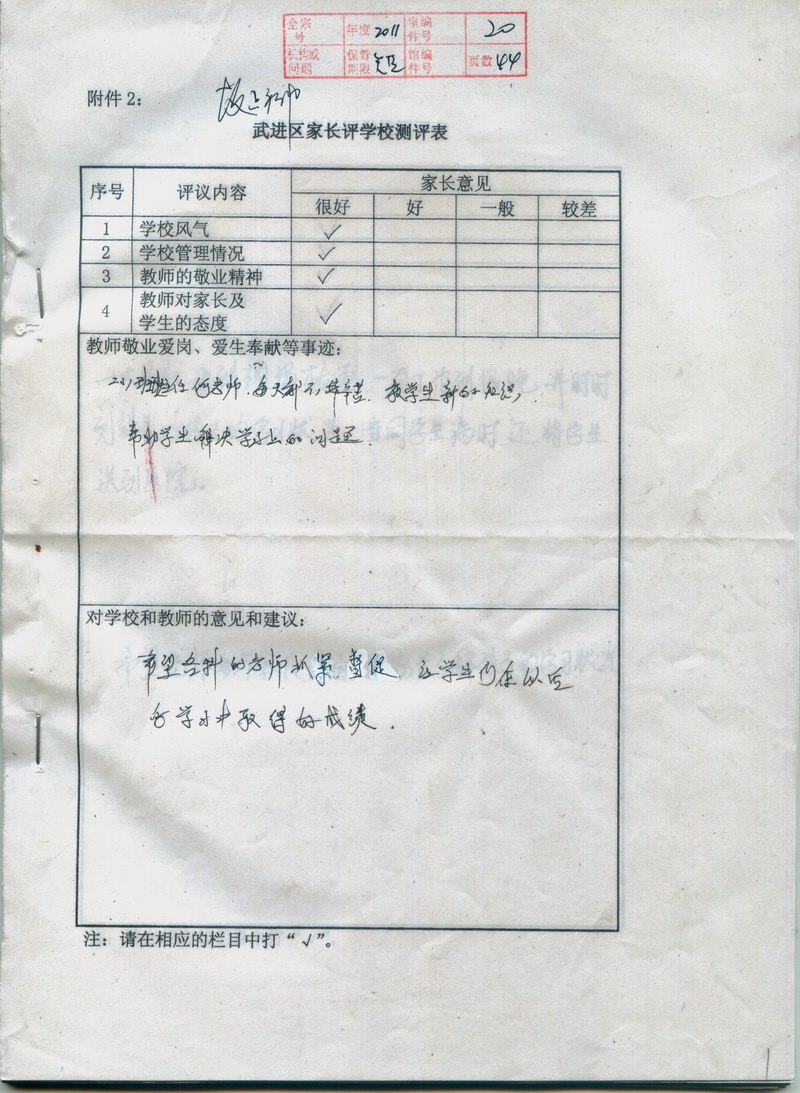 全宗号 年度 2011 室编件号 20
机构或问题 保管期限 馆编件号 页数 44
附件2：
武进区家长评学校测评表
序号 评议内容 家长意见
很好 好 一般 较差
1 学校风气 ✓
2 学校管理情况 ✓
3 教师的敬业精神 ✓
4 教师对家长及
学生的态度 ✓
教师敬业爱岗、爱生奉献等事迹：
二（1）班班主任何老师，每天都不辞辛苦，教学生新的知识，
帮助学生解决学习上的问题。
对学校和教师的意见和建议：
希望各科的老师抓紧督促，让学生们在以后
的学习中取得好成绩.
注：请在相应的栏目中打“√”。